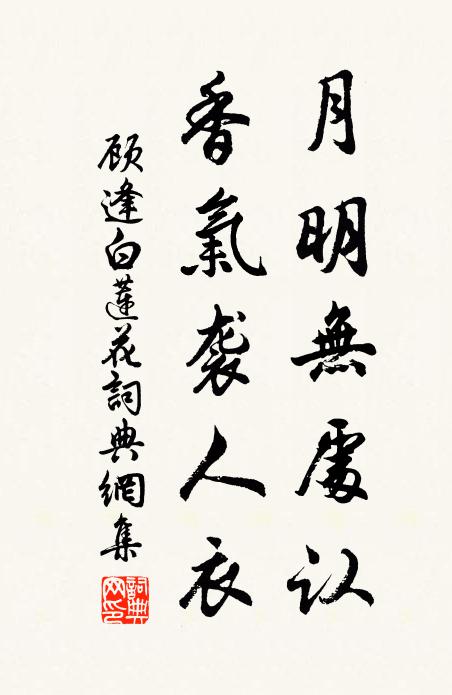 月明無處认
香氣袭人衣
顾逢白蓮花詞典網集
詞典網印